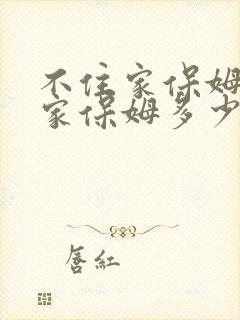 不住家保姆
家保姆多少
唇红